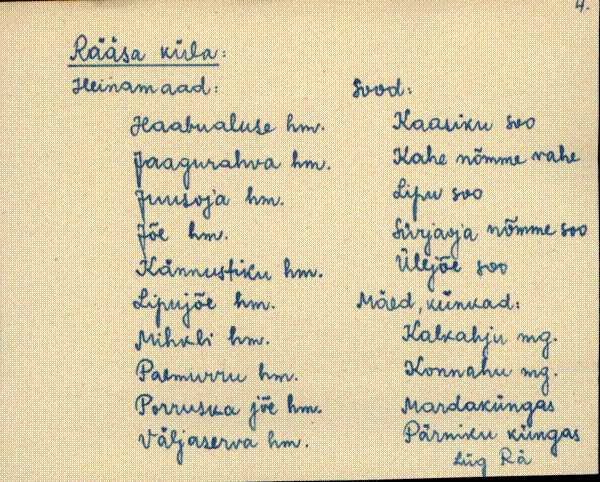 4.
Rääsa küla:
Heinamaad:
Haabualuse hm.
Jaagurahva hm.
Juusoja hm.
Jõe hm.
Kännustiku hm.
Lipujõe hm.
Mihkli hm.
Paemurru hm.
Porruska jõe hm.
Väljaserva hm.
Sood:
Kaasiku soo
Kahe nõmme vahe
Lipu soo
Sirjaoja nõmme soo
Ülejõe soo
Mäed, künkad:
Kalkahju mg.
Konnahu mg.
Mardaküngas
Pärniku küngas
Lüg Rä